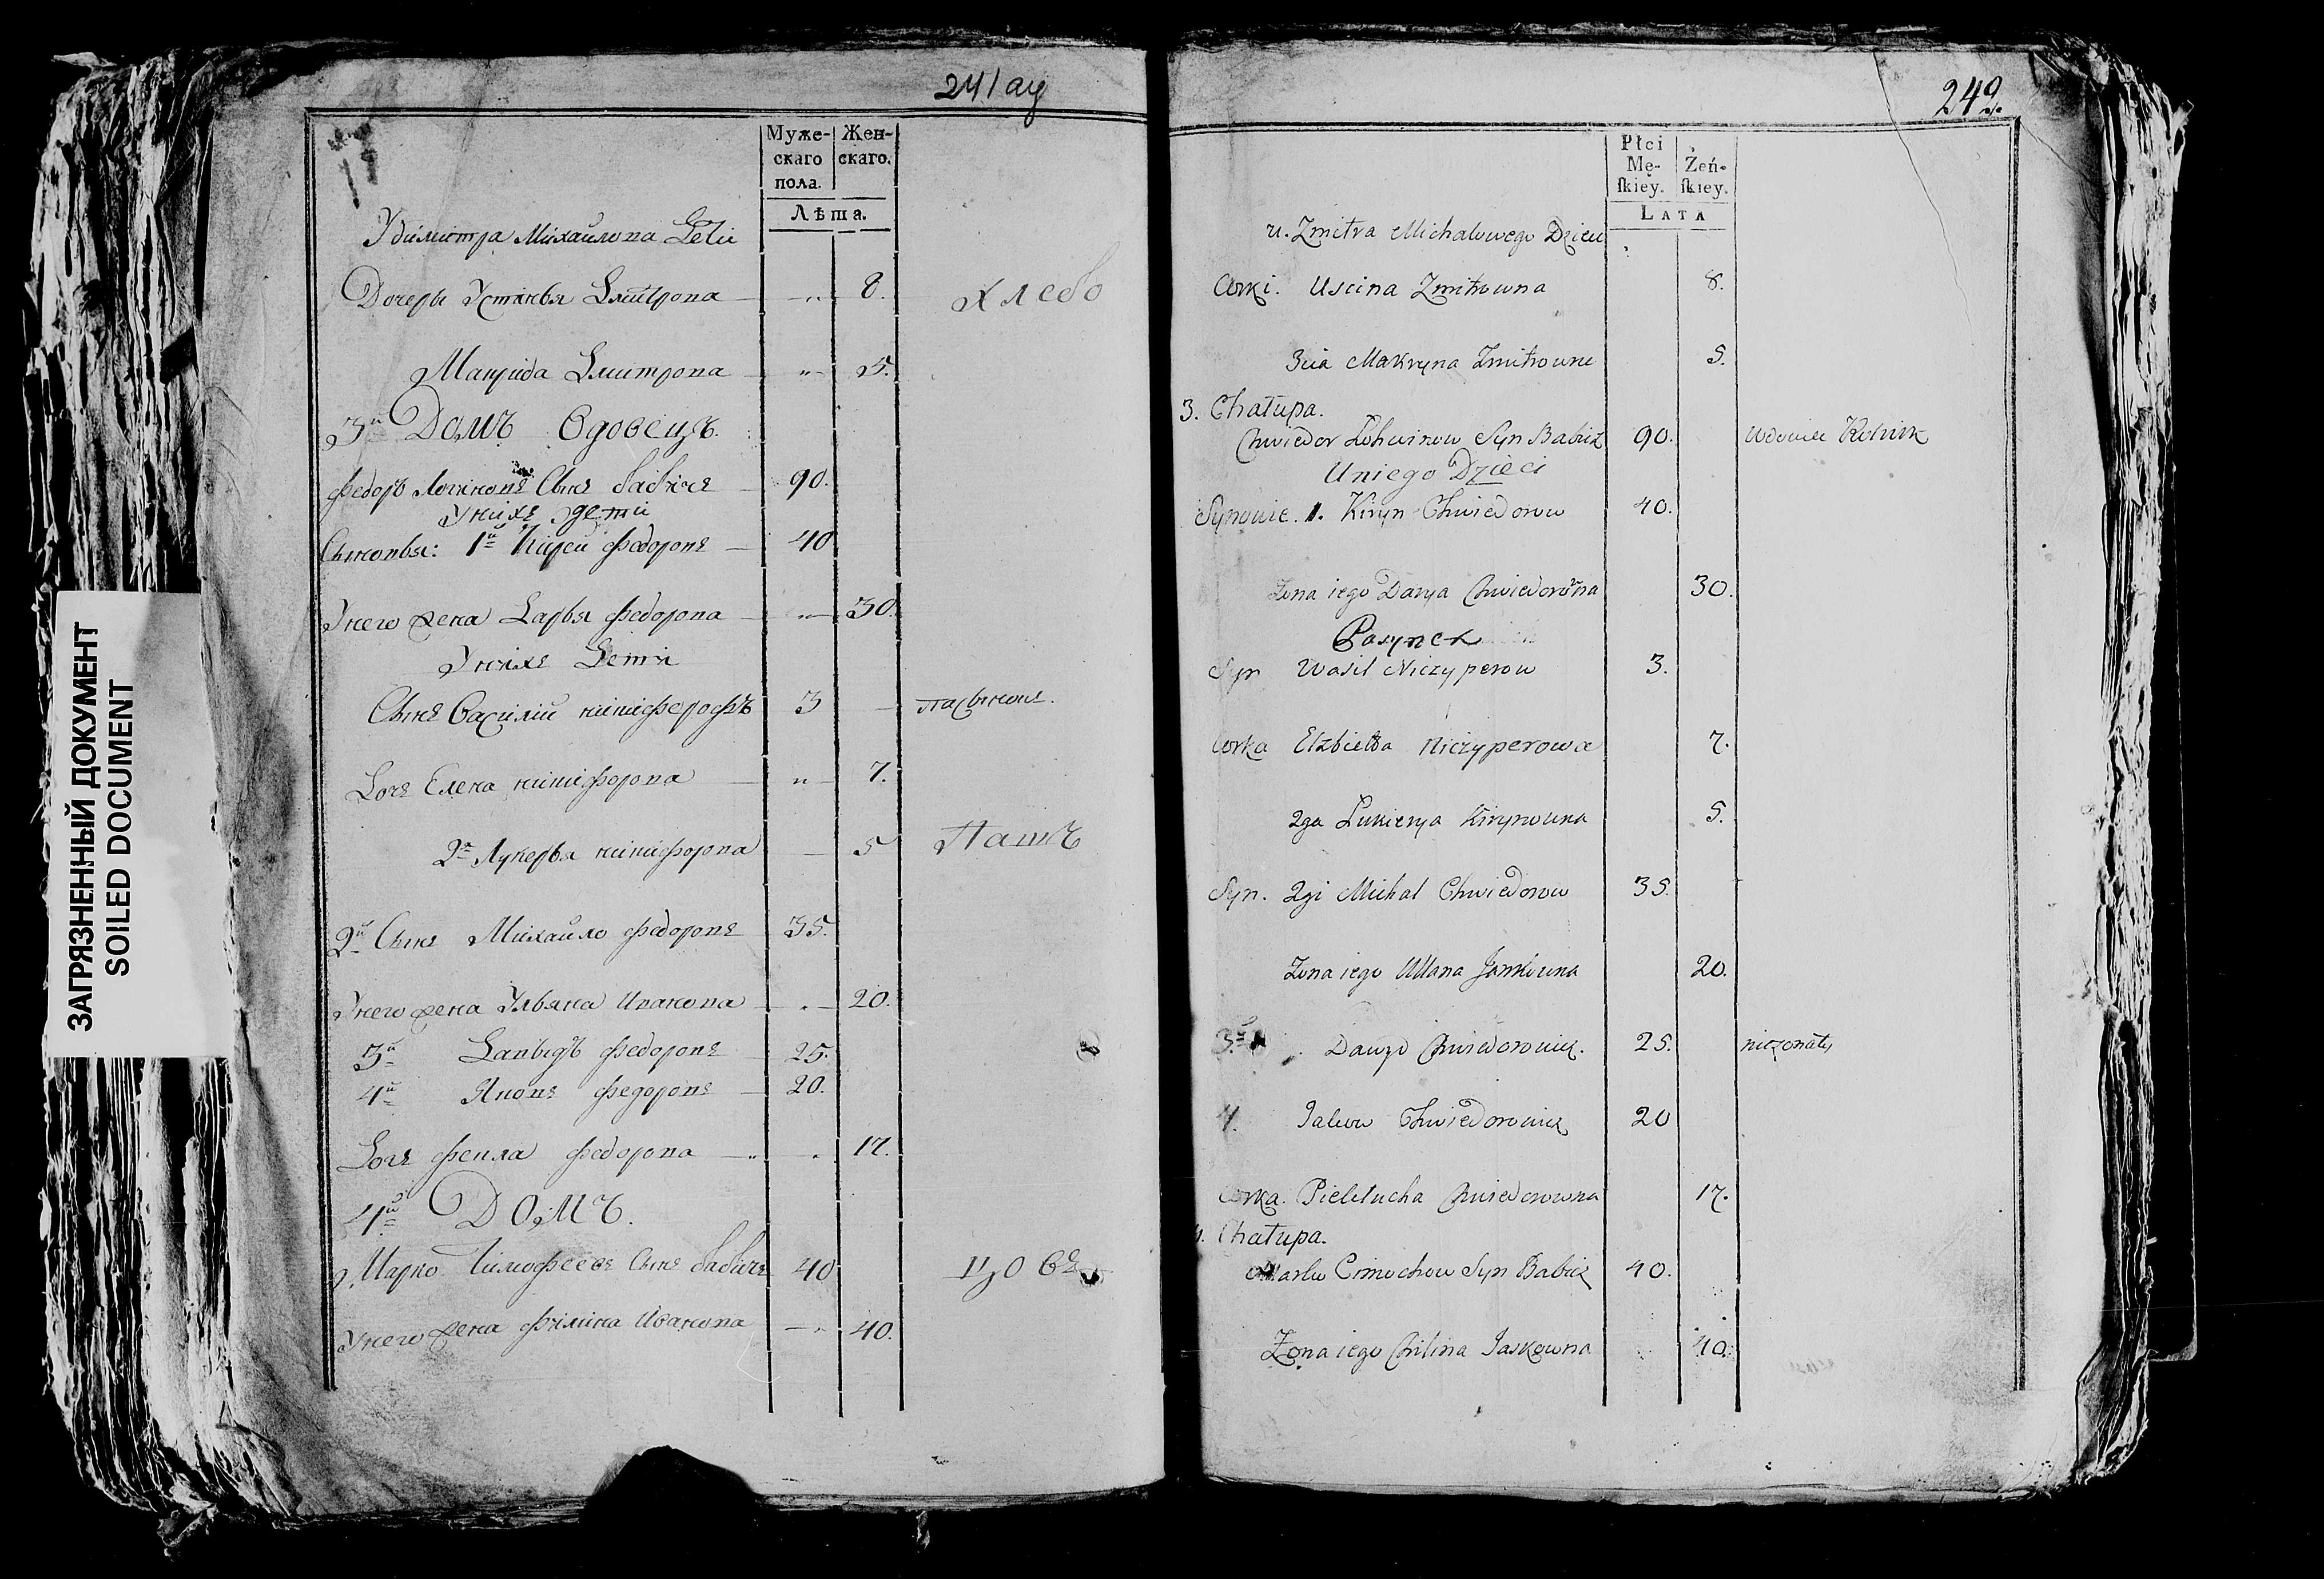 ЗАГРЯЗНЕННЫЙ ДОКУМЕНТ
SOILED DOCUMENT
Муже-
скаго
пола.
Жен-
скаго.
Лѣта.
У Димитра Михайлова Дети
Дочеры Устинья Дмитрова 8.
Дмитрова 5.
3й Домъ Вдовецъ.
Федоръ Логиновъ Сынъ Бабичъ 90.
У нихъ дети
Сыновья: 1й Кирей Федоровъ 40
У него жена Дарья Федорова 30.
У нихъ Дети
Сынъ Василий никифорофъ 3 пасынокъ.
Дочь Елена никифорова 7.
2я Лукерья никифорова 5
2й Сынъ Михайло Федоровъ 35.
У него жена Ульяна Иванова 20.
3й Давыдъ Федоровъ 25.
4й Яковъ Федоровъ 20.
Дочь Фекла Федорова 17.
4й Домъ.
Марко Тимофеевъ Сынъ Бабичъ 40
У него жена Филина Иванова 40.
249
Płci
Mę-
ſkiey.
Żeń-
ſkiey.
LATA
u. Zmitra Michałowego Dzieci
Corki. Uscina Zmitrowna 8.
3cia Makryna Zmitrowna 5.
3. Chałupa.
Chwiedor Łohwinow Syn Babicz 90. Wdowiec Rolnik
U niego Dzieci
Synowie. 1. Kiryn Chwiedorow 40.
Zona iego Darya Chwiedorowna 30.
Pasynek
Syn Wasil Niczyperow 3.
Corka Elzbieta Niczyperowa 7.
2ga Łukierya Kirynowna 5.
Syn. 2gi Michał Chwiedorow 35.
Zona iego Ullana Jankowna 20.
3 Dawyd Chwiedorowicz. 25. nieżonaty
4. Jakow Chwiedorowicz 20
Corka. Chwiedorowna 17.
4. Chałupa.
Marko Cimochow Syn Babicz 40.
Zona iego Chilina Jaskowna 40.